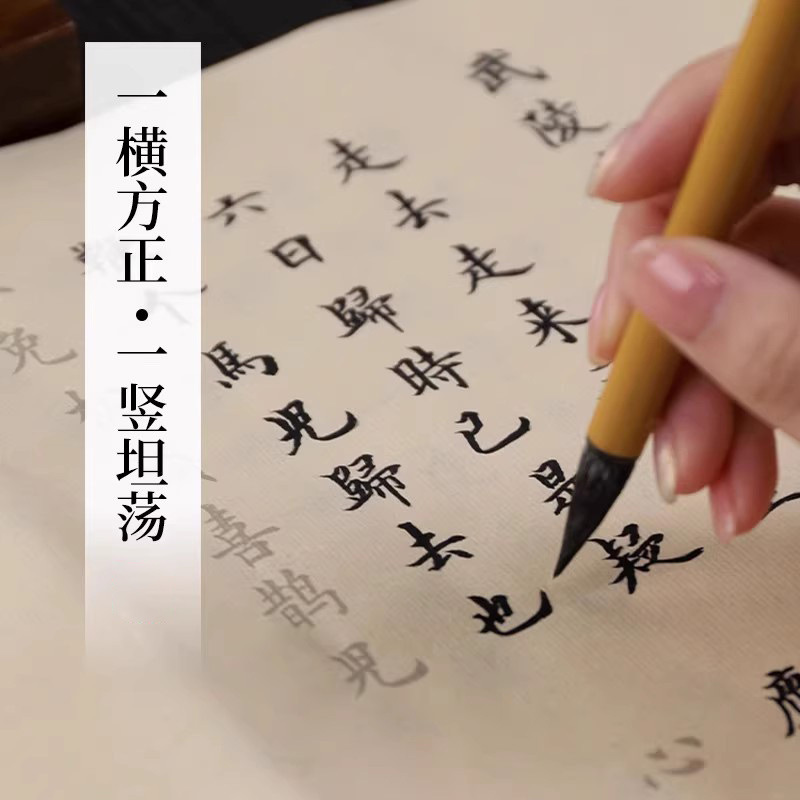 一横方正·一竖坦荡
武陵
走去走来
六日歸時已是疑
馬兒歸去也
喜鹊児
心